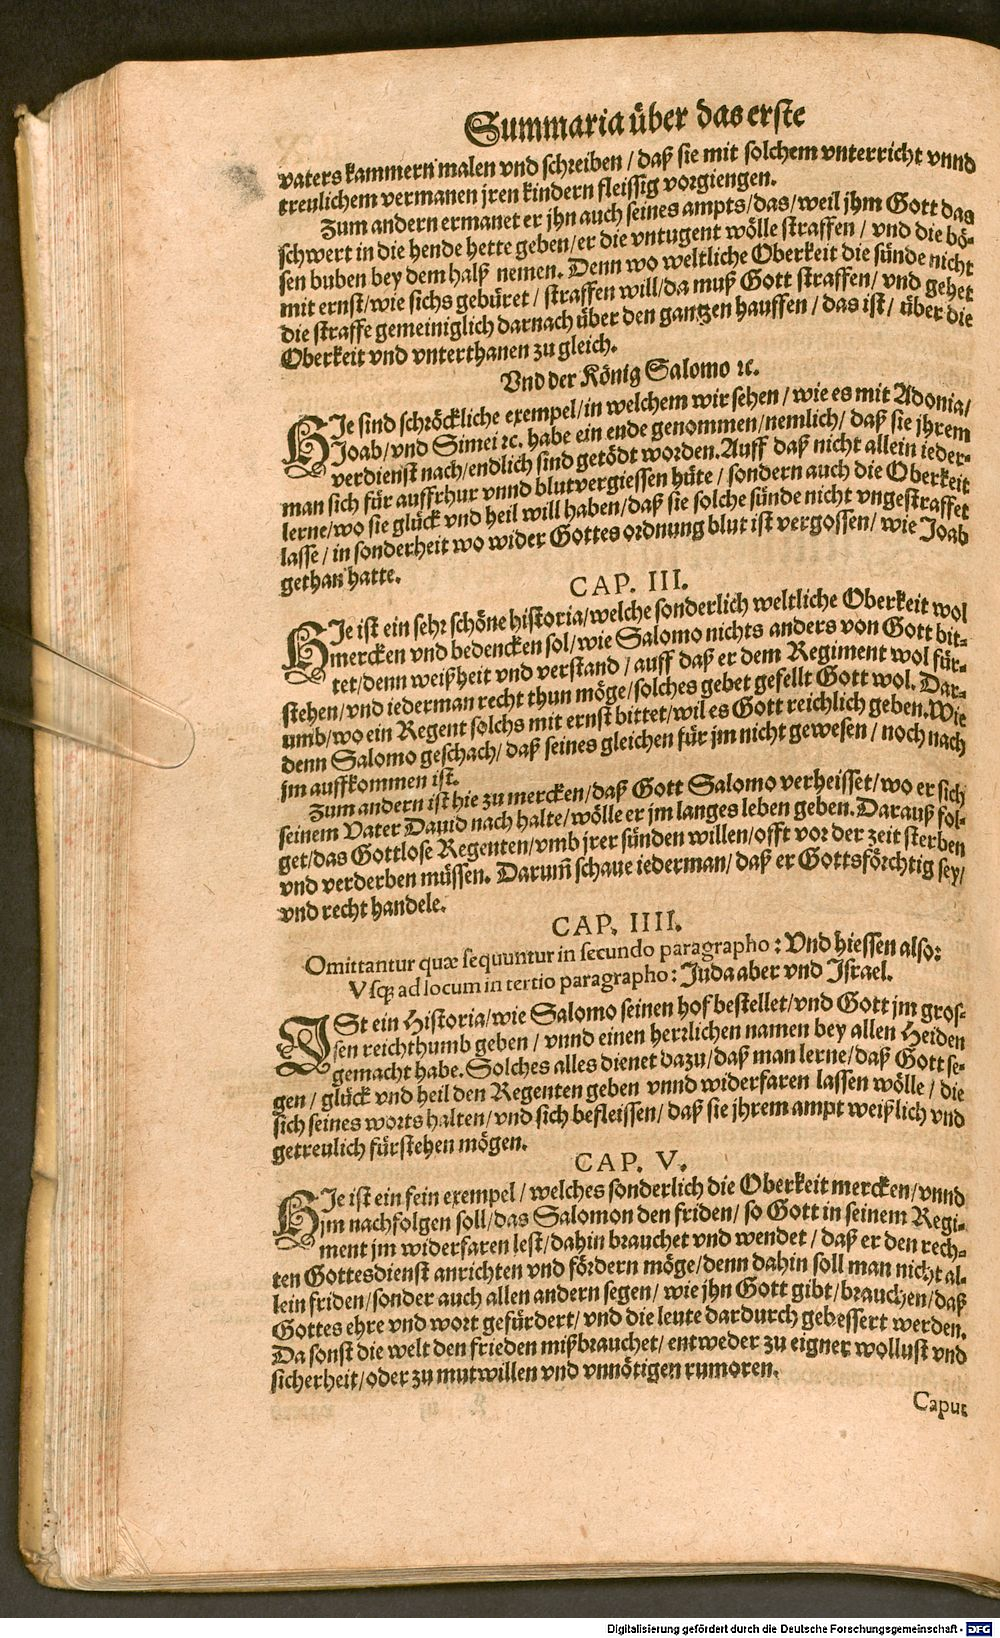 Summaria über das erste
vaters kammern malen vnd schreiben / daß sie mit solchem vnterricht vnnd
treulichem vermanen jren kindern fleissig vorgiengen.
Zum andern ermanet er jhn auch seines ampts/das/weil jhm Gott das
schwert in die hende hette geben/er die vntugent wölle straffen / vnd die bö-
sen buben bey dem halß nemen. Denn wo weltliche Oberkeit die sünde nicht
mit ernst/wie sichs gebüret / straffen will/da muß Gott straffen/ vnd gehet
die straffe gemeiniglich darnach über den gantzen hauffen / das ist/ über die
Oberkeit vnd vnterthanen zu gleich.
Vnd der König Salomo ꝛc.
HIe sind schröckliche exempel/in welchem wir sehen / wie es mit Adonia/
Joab/vnd Simei ꝛc. habe ein ende genommen/nemlich/ daß sie jhrem
verdienst nach/endlich sind getödt worden. Auff daß nicht allein ieder-
man sich für auffrhur vnnd blutvergiessen hüte / sondern auch die Oberkeit
lerne/wo sie glück vnd heil will haben/daß sie solche sünde nicht vngestraffet
lasse / in sonderheit wo wider Gottes ordnung blut ist vergossen/ wie Joab
gethan hatte.
CAP. III.
HIe ist ein sehr schöne historia/welche sonderlich weltliche Oberkeit wol
mercken vnd bedencken sol/wie Salomo nichts anders von Gott bit-
tet/denn weißheit vnd verstand / auff daß er dem Regiment wol für-
stehen/vnd iederman recht thun möge/solches gebet gefellt Gott wol. Dar-
umb/wo ein Regent solchs mit ernst bittet/wil es Gott reichlich geben. Wie
denn Salomo geschach/ daß seines gleichen für jm nicht gewesen / noch nach
jm auffkommen ist.
Zum andern ist hie zu mercken/daß Gott Salomo verheisset/wo er sich
seinem Vater Dauid nach halte/wölle er jm langes leben geben. Darauß fol-
get/das Gottlose Regenten/vmb jrer sünden willen/offt vor der zeit sterben
vnd verderben müssen. Darum̄ schaue iederman/ daß er Gottsförchtig sey/
vnd recht handele.
CAP. IIII.
Omittantur quæ sequuntur in secundo paragrapho: Vnd hiessen also:
Vsq; ad locum in tertio paragrapho: Juda aber vnd Israel.
ISt ein Historia/wie Salomo seinen hof bestellet/vnd Gott jm gros-
sen reichthumb geben / vnnd einen herrlichen namen bey allen Heiden
gemacht habe. Solches alles dienet dazu/daß man lerne/daß Gott se-
gen / glück vnd heil den Regenten geben vnnd widerfaren lassen wölle / die
sich seines worts halten/vnd sich befleissen/ daß sie jhrem ampt weißlich vnd
getreulich fürstehen mögen.
CAP. V.
HIe ist ein fein exempel / welches sonderlich die Oberkeit mercken/vnnd
jm nachfolgen soll/das Salomon den friden/ so Gott in seinem Regi-
ment jm widerfaren lest/dahin brauchet vnd wendet / daß er den rech-
ten Gottesdienst anrichten vnd fördern möge/denn dahin soll man nicht al-
lein friden/sonder auch allen andern segen/ wie jhn Gott gibt/brauchen/daß
Gottes ehre vnd wort gefürdert/vnd die leute dardurch gebessert werden.
Da sonst die welt den frieden mißbrauchet/ entweder zu eigner wollust vnd
sicherheit/oder zu mutwillen vnd vnnötigen rumoren.
Caput
Digitalisierung gefördert durch die Deutsche Forschungsgemeinschaft - DFG